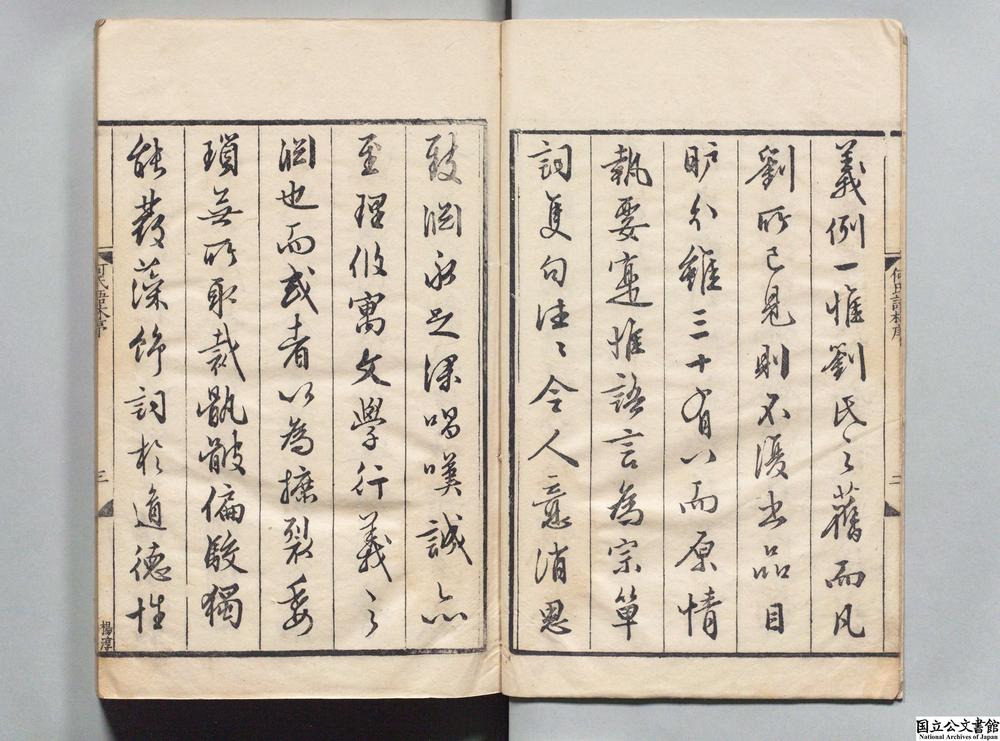 義例一惟劉氏之舊而凡
劉所已見則不復出品目
臚分雖三十有八而原情
執要寔惟語言為宗單
詞隻句往々令人意消思
致淵永足深唱嘆誠亦
至理攸寓文學行義之
淵也而或者以為摭裂委
瑣無所取裁骫骳偏駮獨
能發藻飾詞於道德性
何氏語林序
二
何氏語林序
三
楊淳
国立公文書館
National Archives of Japan